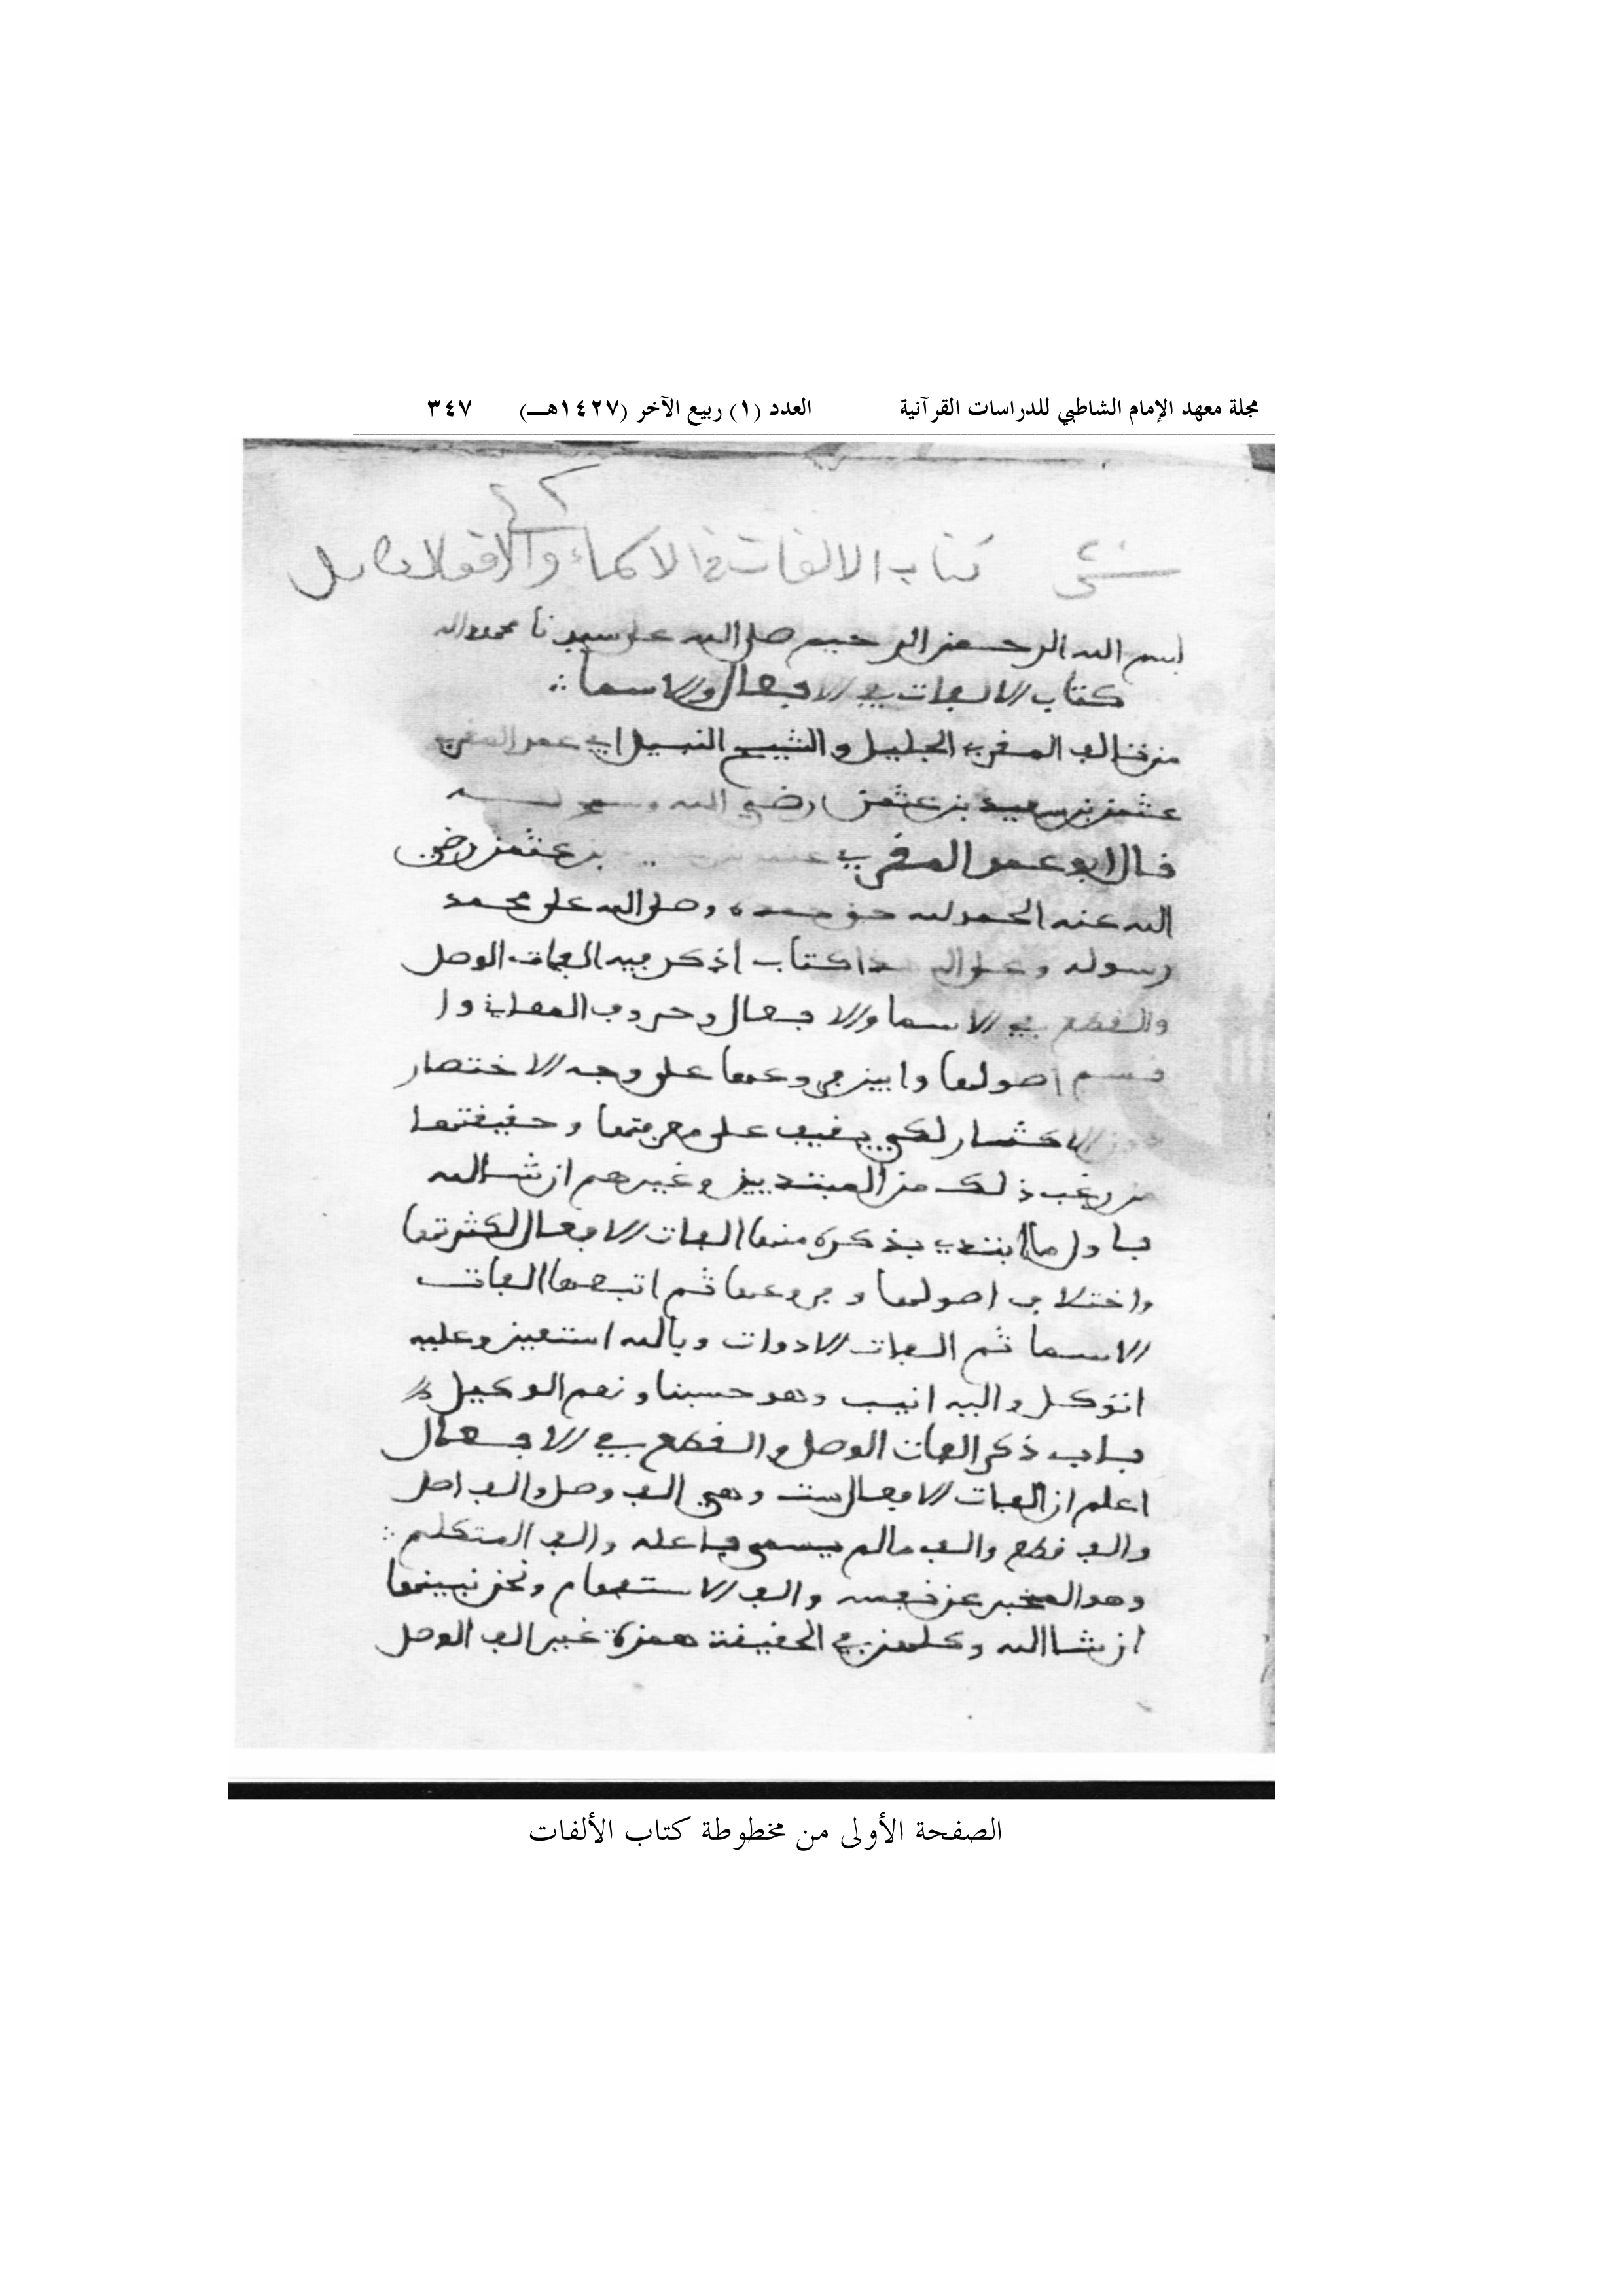 مجلة معهد الإمام الشاطبي للدراسات القرآنية العدد (١) ربيع الآخر (١٤٢٧هــ) ٣٤٧
كتاب الالفات في الاسماء والافعال
بسم الله الرحمن الرحيم صلى الله على سيدنا محمد واله
كتاب الالفات في الافعال والاسما
من تاليف المقرئ الجليل والشيخ النبيل ابي عمرو المقرئ
عثمن بن سعيد بن عثمن رضي الله
قال ابو عمرو المقرئ بن عثمن رضي
الله عنه الحمد لله حق حمده وصلى الله على محمد
رسوله وعلى اله هذا كتاب اذكر فيه الفات الوصل
والقطع في الاسما والافعال وحروف المعاني وا
قسم اصولها وابين فروعها على وجه الاختصار
الاكثار لكي يقف على معرفتها وحقيقتها
من رغب ذلك من المبتديين وغيرهم ان شا الله
فاول ما ابتدي بذكره منها الفات الافعال لكثرتها
واختلاف اصولها وفروعها ثم اتبعها الفات
الاسما ثم الفات الادوات وبالله استعين وعليه
اتوكل واليه انيب وهو حسبنا ونعم الوكيل
باب ذكر الفات الوصل والقطع في الافعال
اعلم ان الفات الافعال ست وهي الف وصل والف اصل
والف قطع والف مالم يسمى فاعله والف المتكلم
وهو المخبر عن نفسه والف الاستفهام ونحن نبينها
ان شا الله وكلهن في الحقيقة همزة غير الف الوصل
الصفحة الأولى من مخطوطة كتاب الألفات